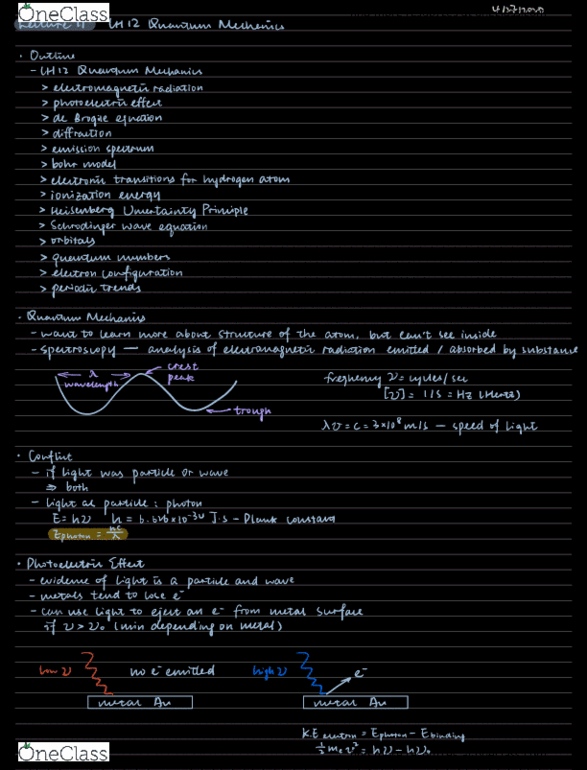 OneClass
4/27/2020
Lecture 11 CH 12 Quantum Mechanics
• Outline
- CH 12 Quantum Mechanics
> electromagnetic radiation
> photoelectric effect
> de Brogue equation
> diffraction
> emission spectrum
> bohr model
> electronic transitions for hydrogen atom
> ionization energy
> Heisenberg Uncertainty Principle
> Schrodinger wave equation
> orbitals
> quantum numbers
> electron configuration
> periodic trends
• Quantum Mechanics
- want to learn more about structure of the atom, but can't see inside
- spectroscopy — analysis of electromagnetic radiation emitted / absorbed by substance
λ
wavelength
crest
peak
trough
frequency ν = cycles/sec
[ν] = 1/s = Hz (Hertz)
λν = c = 3×10⁸ m/s — speed of light
• Conflict
- if light was particle or wave
⇒ both
- light as particle: photon
E = hν h = 6.626×10⁻³⁴ J·s - Plank constant
Ephoton = hc/λ
• Photoelectric Effect
- evidence of light is a particle and wave
- metals tend to lose e⁻
- can use light to eject an e⁻ from metal surface
if ν > ν₀ (min depending on metal)
low ν
no e⁻ emitted
metal Au
high ν
e⁻
metal Au
K.E electron = Ephoton - Ebinding
½ mₑν² = hν - hν₀
OneClass